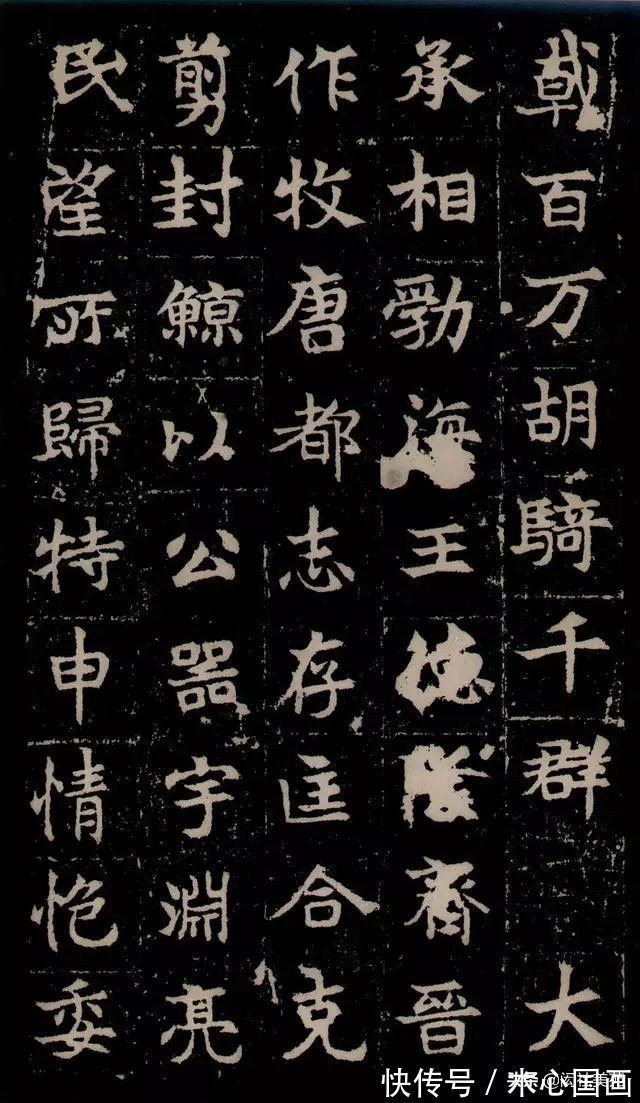 戟百万胡騎千群 大
承相勃海王德隆齊晉
作牧唐都志存匡合克
剪封鯨以公器宇淵亮
民望所歸特申情抱委
快传号 / 心国画